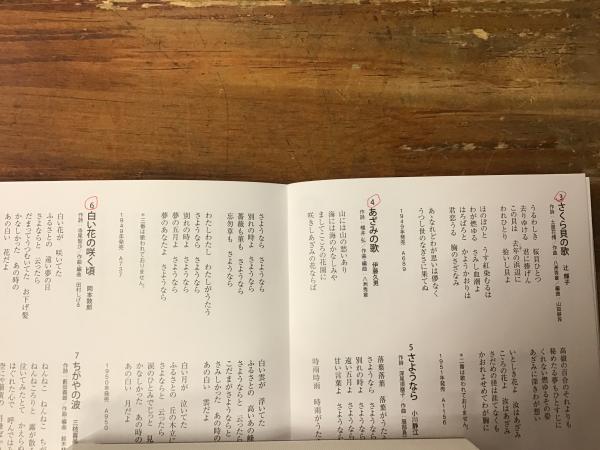 3 さくら貝の歌 辻 輝子
作詩・土屋花情 作曲・八洲秀章 編曲・山田耕筰
うるわしき 桜貝ひとつ
去りゆける 君に捧げん
この貝は 去年の浜辺に
われひとり ひろいし貝よ
ほのぼのと うす紅染むるは
わが燃ゆる さみし血潮よ
はろばろと かようかおりは
君恋うる 胸のさざなみ
ああなれどわが思いは儚なく
うつし世のなぎさに果てぬ
1949年発売 A659
4 あざみの歌 伊藤久男
作詩・横井 弘 作曲・編曲・八洲秀章
山には山の愁いあり
海には海のかなしみや
ましてこころの花園に
咲きしあざみの花ならば
高嶺の百合のそれよりも
秘めたる夢をひとすじに
くれない燃ゆるその姿
あざみに深きわが想い
いとしき花よ 汝はあざみ
こころの花よ 汝はあざみ
さだめの径は涯てなくも
かおれよせめてわが胸に
*二番は歌われておりません。
1951年発売 A1156
5 さようなら 小川静江
落葉落葉 落葉がうた
さようなら さようなら
別れの時よ
遠い五月よ
甘い言葉よ
時雨時雨 時雨がうた
さようなら さようなら
別れの時よ さようなら
薔薇も菫も さようなら
忘勿草も さようなら
わたしわたし わたしがうたう
さようなら さようなら
別れの時よ さようなら
夢の五月よ さようなら
夢のあなたよ さようなら
*二番は歌われておりません。
1949年発売 A737
6 白い花の咲く頃 岡本敦郎
作詩・寺尾智沙 作曲・編曲・田村しげる
白い花が 咲いてた
ふるさとの 遠い夢の日
さよならと 云ったら
だまってうつむいてた お下げ髪
かなしかった あの時の
あの白い 花だよ
白い雲が 浮いてた
ふるさとの 高いあの峰
さようならと 云ったら
こだまがさようならと
さみしかった あの時の
あの白い 雲だよ
白い月が 泣いてた
ふるさとの 丘の木立に
さようならと 云ったら
涙のひとみでじっと 見
かなしかった あの時の
あの白い 月だよ
1950年発売 A950
7 ちがやの波
ねんねこ ねんねこ
ねんねころりと
泣いてみたとて
はぐれた